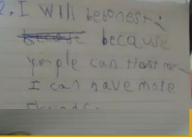 2. I will be honest
because because
people can trust me
I can have more
friends